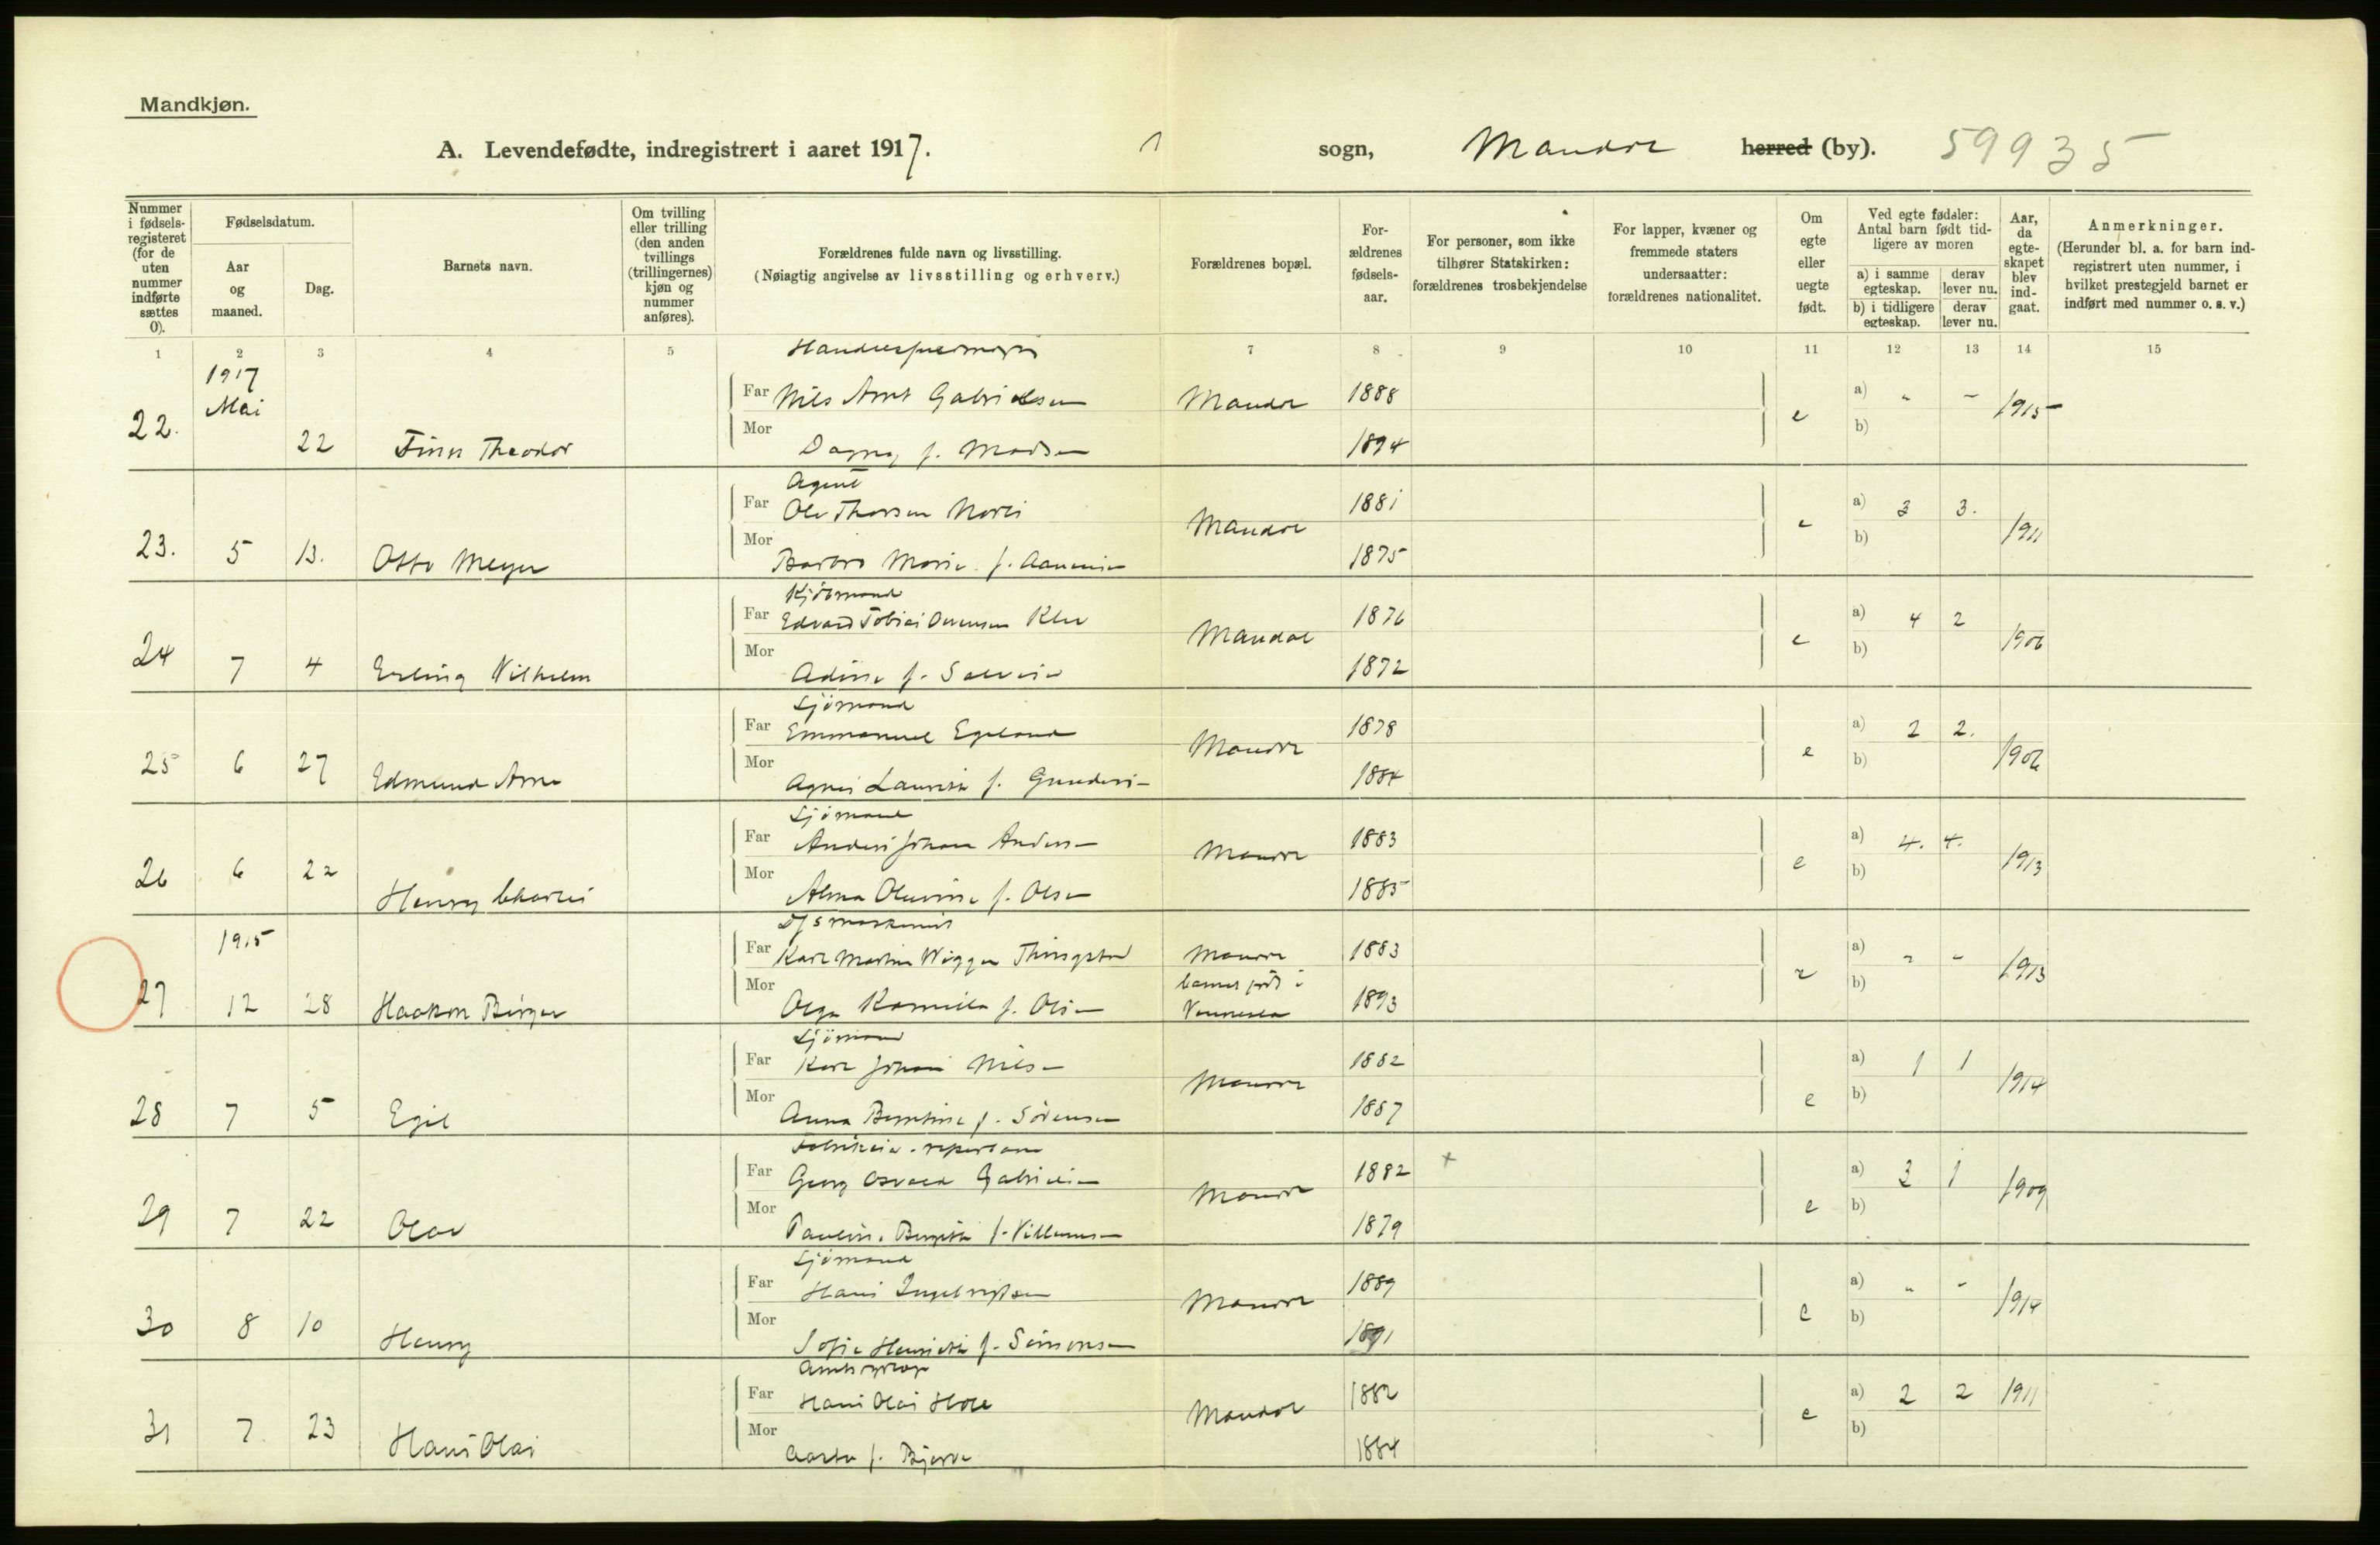 Mandkjøn.
A. Levendefødte, indregistrert i aaret 1917. 1 sogn, Mandal herred (by). 59935
Nummer i fødselsregisteret (for de uten nummer indførte sættes 0).
Fødselsdatum.
Aar og maaned.
Dag.
Barnets navn.
Om tvilling eller trilling (den anden tvillings (trillingernes) kjøn og nummer anføres).
Forældrenes fulde navn og livsstilling.
(Nøiagtig angivelse av livsstilling og erhverv.)
Forældrenes bopæl.
Forældrenes fødselsaar.
For personer, som ikke tilhører Statskirken: forældrenes trosbekjendelse
For lapper, kvæner og fremmede staters undersaatter: forældrenes nationalitet.
Om egte eller uegte født.
Ved egte fødsler: Antal barn født tidligere av moren
a) i samme egteskap.
derav lever nu.
b) i tidligere egteskap.
derav lever nu.
Aar, da egteskapet blev indgaat.
Anmerkninger.
(Herunder bl. a. for barn indregistrert uten nummer, i hvilket prestegjeld barnet er indført med nummer o. s. v.)
1 2 3 4 5 7 8 9 10 11 12 13 14 15
1917
Mai
22. 22 Finn Theodor
Far Nils Arnt Gabrielsen Mandal 1888
Mor Dagny f. Madsen 1894
e a) " - b) 1915
Agent
23. 5 13. Otto Meyer
Far Ole Thorsen Mandal 1881
Mor Barbro Marie f. 1875
e a) 3 3. b) 1911
24 7 4 Erling Vilhelm
Far Edvard Tobias Mandal 1876
Mor Adine f. 1872
e a) 4 2 b) 1906
Sjömand
25 6 27 Edmund Arne
Far Emmanuel Egeland Mandal 1878
Mor Agnes Laurita f. 1884
e a) 2 2. b) 1906
Sjömand
26 6 22 Henry Charles
Far Anders Johan Andersen Mandal 1883
Mor Alma f. Olsen 1885
e a) 4. 4. b) 1913
1915
D/S maskinist
27 12 28 Haakon Birger
Far Karl Martin Wigger Mandal 1883
Mor Olga Kamilla f. Olsen barnet født i Vennesla 1893
a) " - b) 1913
Sjömand
28 7 5 Egil
Far Karl Johan Nilsen Mandal 1882
Mor Anna f. Sörensen 1887
e a) 1 1 b) 1914
29 7 22 Olav
Far Georg Osvald Gabrielsen Mandal 1882 +
Mor 1879
e a) 3 1 b) 1909
Sjömand
30 8 10 Henry
Far Hans Ingebrigtsen Mandal 1889
Mor Sofie f. Simonsen 1891
e a) " - b) 1914
31 7 23 Hans Olai
Far Hans Olai Mandal 1882
Mor f. 1884
e a) 2 2 b) 1911